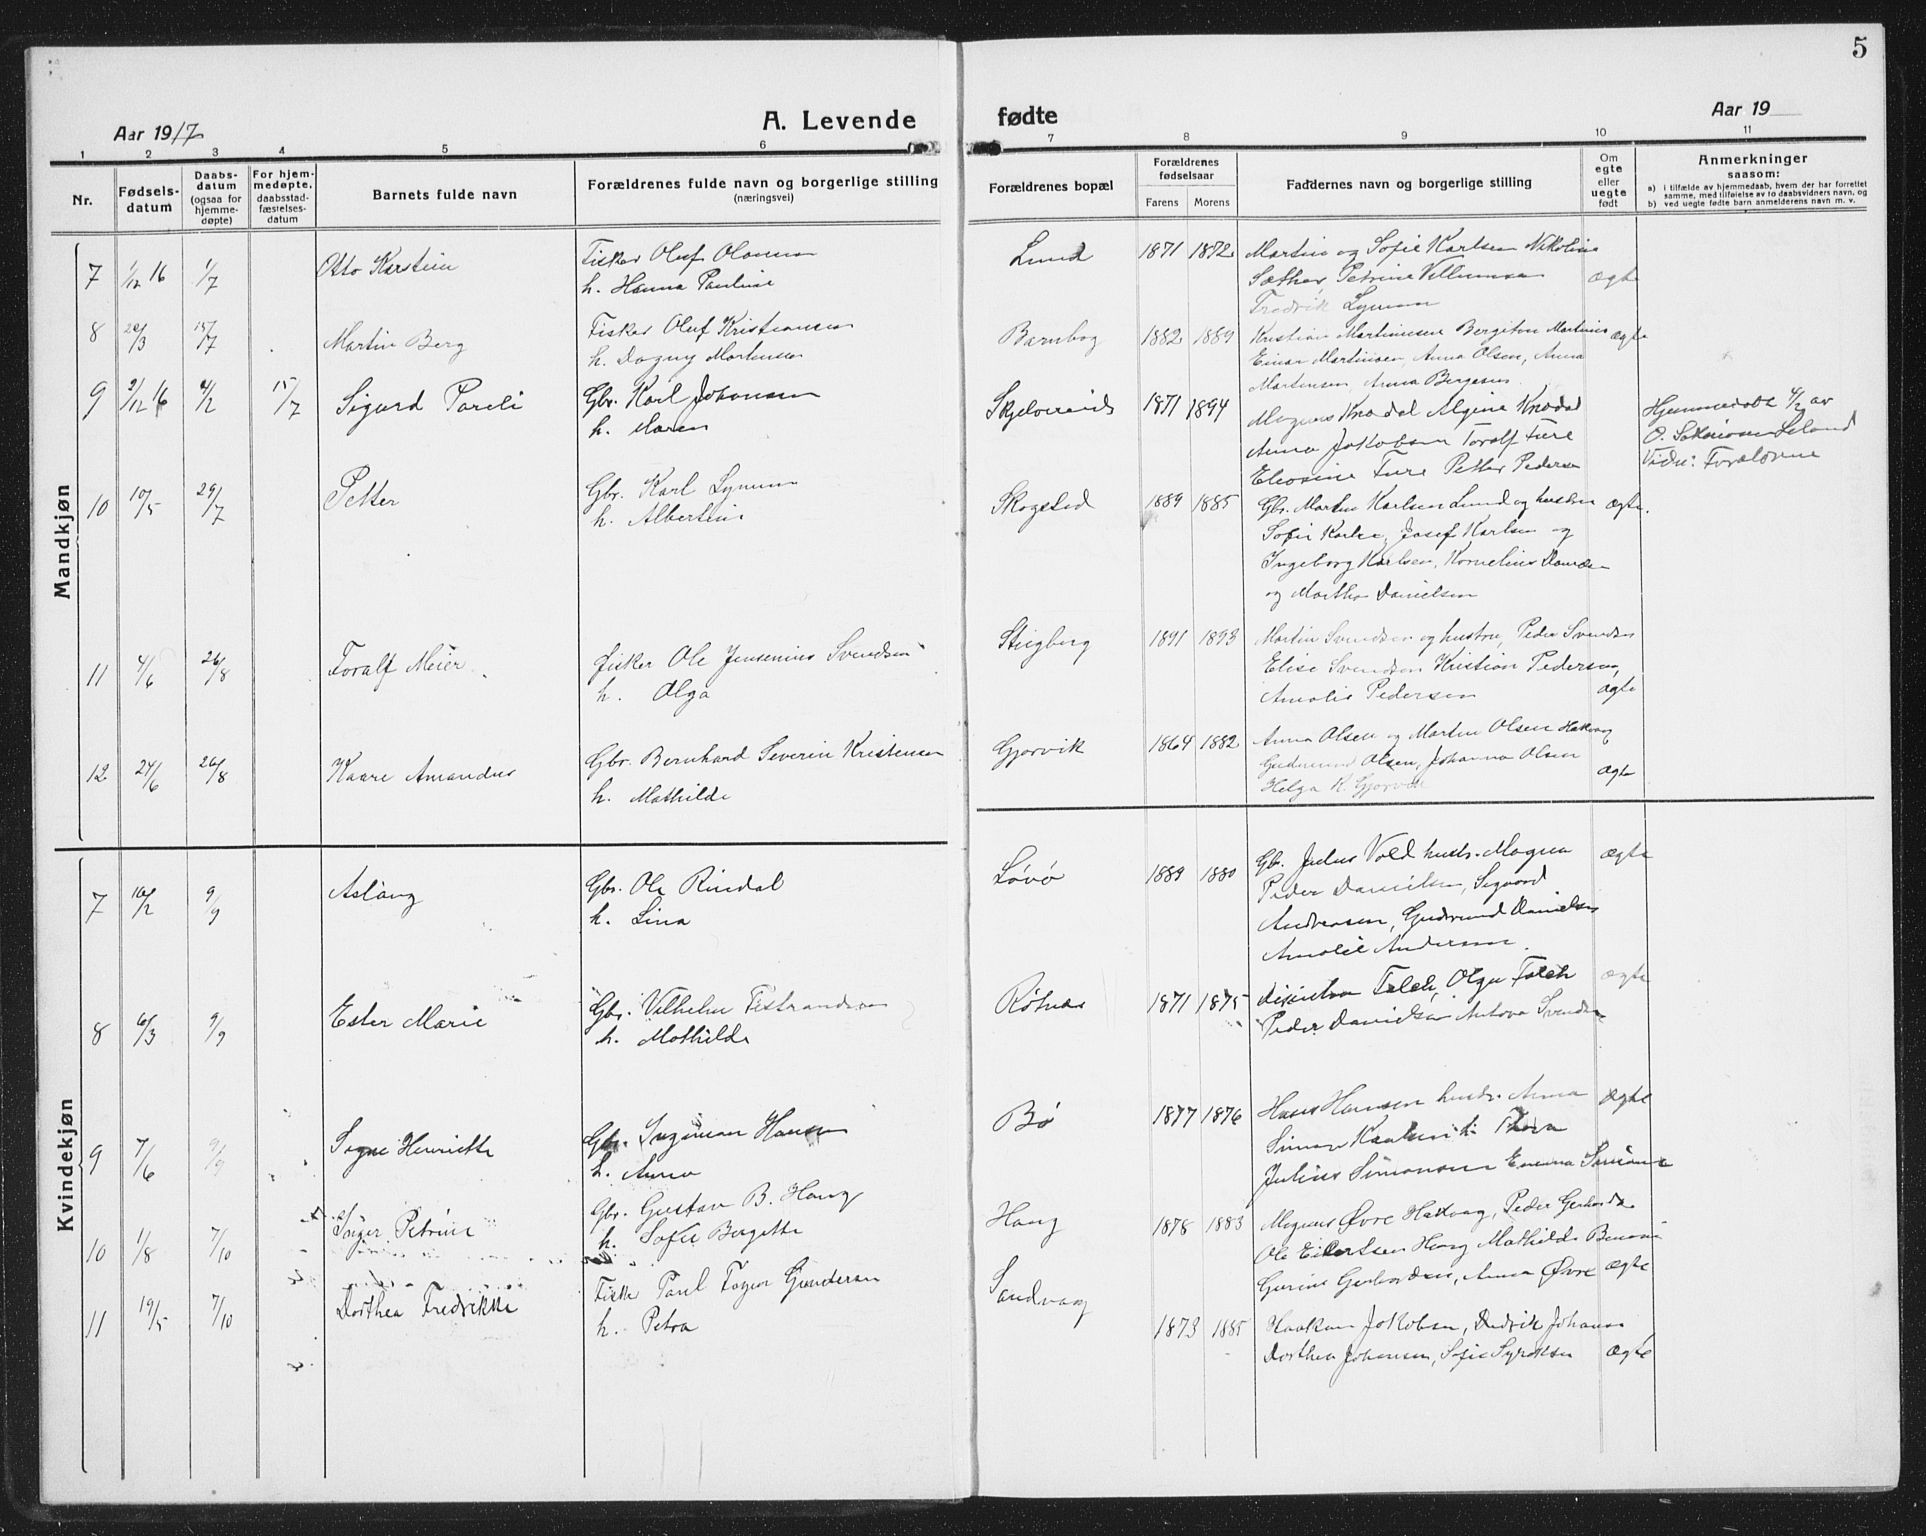 5
Aar 1917
A. Levende
fødte
Aar 19
1 2 3 4 5 6 7 8 9 10 11
Nr.
Fødsels-
datum
Daabs-
datum
(ogsaa for
hjemme-
døpte)
For hjem-
medøpte,
daabsstad-
fæstelses-
datum
Barnets fulde navn
Forældrenes fulde navn og borgerlige stilling
(næringsvei)
Forældrenes bopæl
Forældrenes
fødselsaar
Farens Morens
Faddernes navn og borgerlige stilling
Om
egte
eller
uegte
født
Anmerkninger
saasom:
a) i tilfælde av hjemmedaab, hvem der har forrettet
samme, med tilføielse av to daabsvidners navn, og
b) ved uegte fødte barn anmelderens navn m. v.
Mandkjøn
7 1/12 16 1/7 Otto Karstein
Fisker Oluf
h. Hanna Pauline
Lund 1871 1872
Martin og Sofie Karlsen Nikoline
Sæther, Petrine Villumsen
Fredrik Lyman
ægte
8 20/3 15/7 Martin Berg
Fisker Oluf Kristiansen
h. Dagny Martensen
1882 1889
Kristian Martinusen
Einar Martinsen, Anna Olsen, Anna
Martensen, Anna
ægte
9 2/12 16 4/2 15/7 Sigurd Pareli
Gbr. Karl Johansen
h. Maren
1871 1894
Magnus Knodal Algine Knodal
Anna Jakobsen Toralf Fure
Eleosine Fure Petter Pedersen
Hjemmedøbt 4/2 av
O. Leland
Vidn: Forældrene
10 10/5 29/7 Petter
Gbr. Karl Lyman
h. Albertine
Skogstad 1889 1885
Gbr. Martin Karlsen Lund og hustru
Sofie Karlsen, Josef Karlsen og
Ingeborg Karlsen, Kornelius
og Martha Danielsen
ægte.
11 4/6 26/8 Toralf Meier
Fisker Ole Jensenius Svendsen
h. Olga
Stigberg 1891 1893
Martin Svendsen og hustru, Peder Svendsen
Elise Svendsen Kristian Pedersen,
Amalie Pedersen
ægte
12 24/6 26/8 Kaare Amandus
Gbr. Bernhard Severin Kristensen
h. Mathilde
Gjørvik 1864 1882
Anna Olsen og Martin Olsen Hakvaag
Gudmund Olsen, Johanna Olsen
Helga K. Gjørvik
ægte
Kvindekjøn
7 10/2 9/9 Aslaug
Gbr. Ole Rindal
h. Lina
Løvø 1889 1880
Gbr. Julius Vold hustr. Magna
Peder Danielsen, Sigvard
Andreasen, Gudrund Danielsen
Amalie Andersen.
ægte
8 6/3 9/9 Ester Marie
Gbr. Vilhelm
h. Mathilde
Røtnes 1871 1875
Falch, Olga Falch
Peder Danielsen Antona Svendsen
ægte
9 7/6 9/9 Signe Henriette
Gbr. Ingman Hansen
h. Anna
Bø 1877 1876
Hans Hansen hustr. Anna
Simon Karlsen h. Thora
Julius Simonsen Emma Simonsen
ægte
10 1/8 7/10 Inger Petrine
Gbr. Gustav B. Haug
h. Sofie Bergitte
Haug 1878 1883
Magnus Øvre Hakvaag, Peder
Ole Eilertsen Haug Mathilde
Anna Øvre
ægte
11 19/5 7/10 Dorthea Fredrikke
Fisker Paul Gundersen
h. Petra
Sandvaag
1873 1885
Haakon Jakobsen, Johansen
Dorthea Johansen, Sofie
ægte